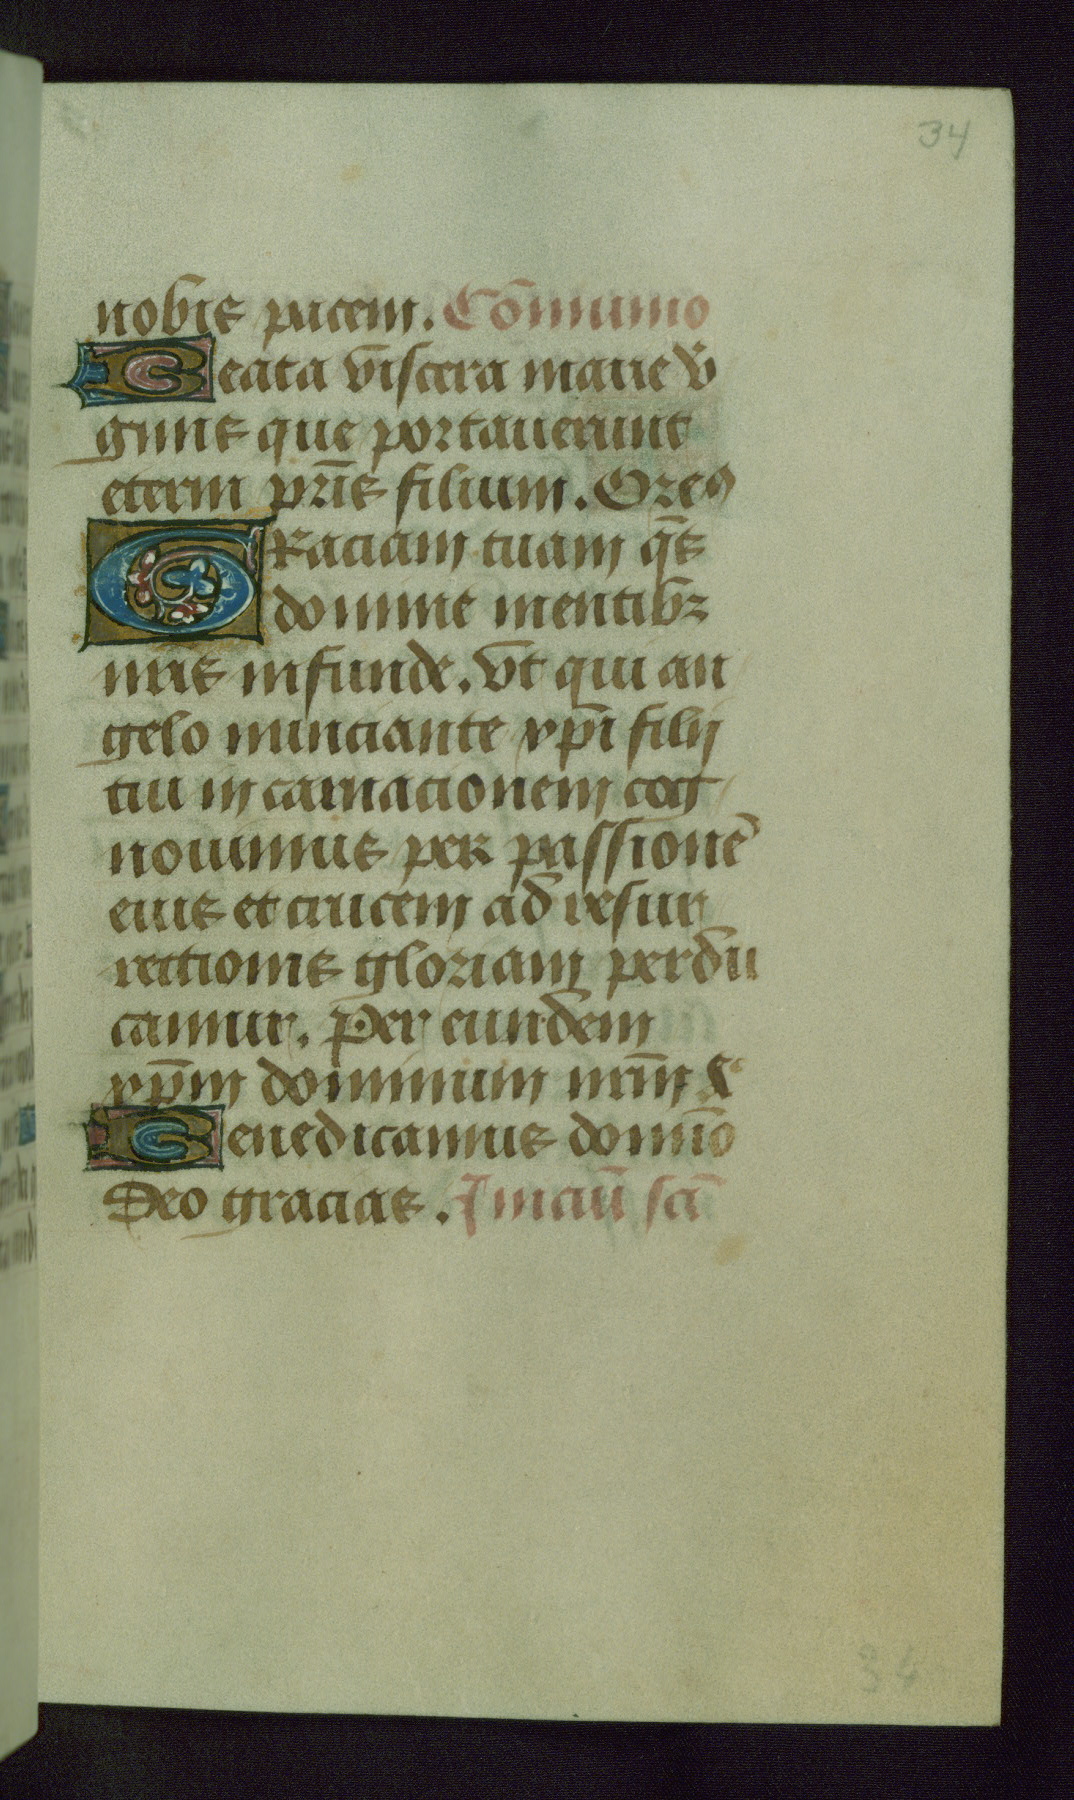 34
nobis pacem. Cōmunio
Beata viscera marie v̄
ginis que portauerunt
eterni pr̄is filium. Oremꝰ
GRaciam tuam q̄s
domine mentibꝫ
nr̄is infunde. vt qui an
gelo nunciante xp̄i filij
tui in carnacionem cog
nouimus per passionē
eius et crucem ad resur
rectionis gloriam perdu
camur. Per eundem
xp̄m dominum nr̄m &c
Benedicamus domīo
Deo gracias. Iniciū sc̄i
34